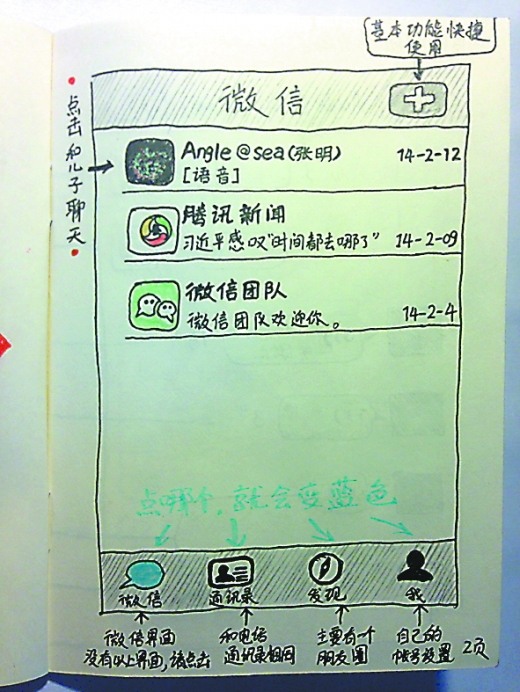 基本功能快捷
使用
微信
点击和儿子聊天
Angle@sea(张明)
14-2-12
[语音]
腾讯新闻
习近平感叹"时间都去哪了"
14-2-09
微信团队
微信团队欢迎你。
14-2-4
点哪个,就会变蓝色
微信
通讯录
发现
我
微信界面
没有以上界面,请点击
和电话
通讯录相同
主要有一个
朋友圈
自己的
帐号设置
2页